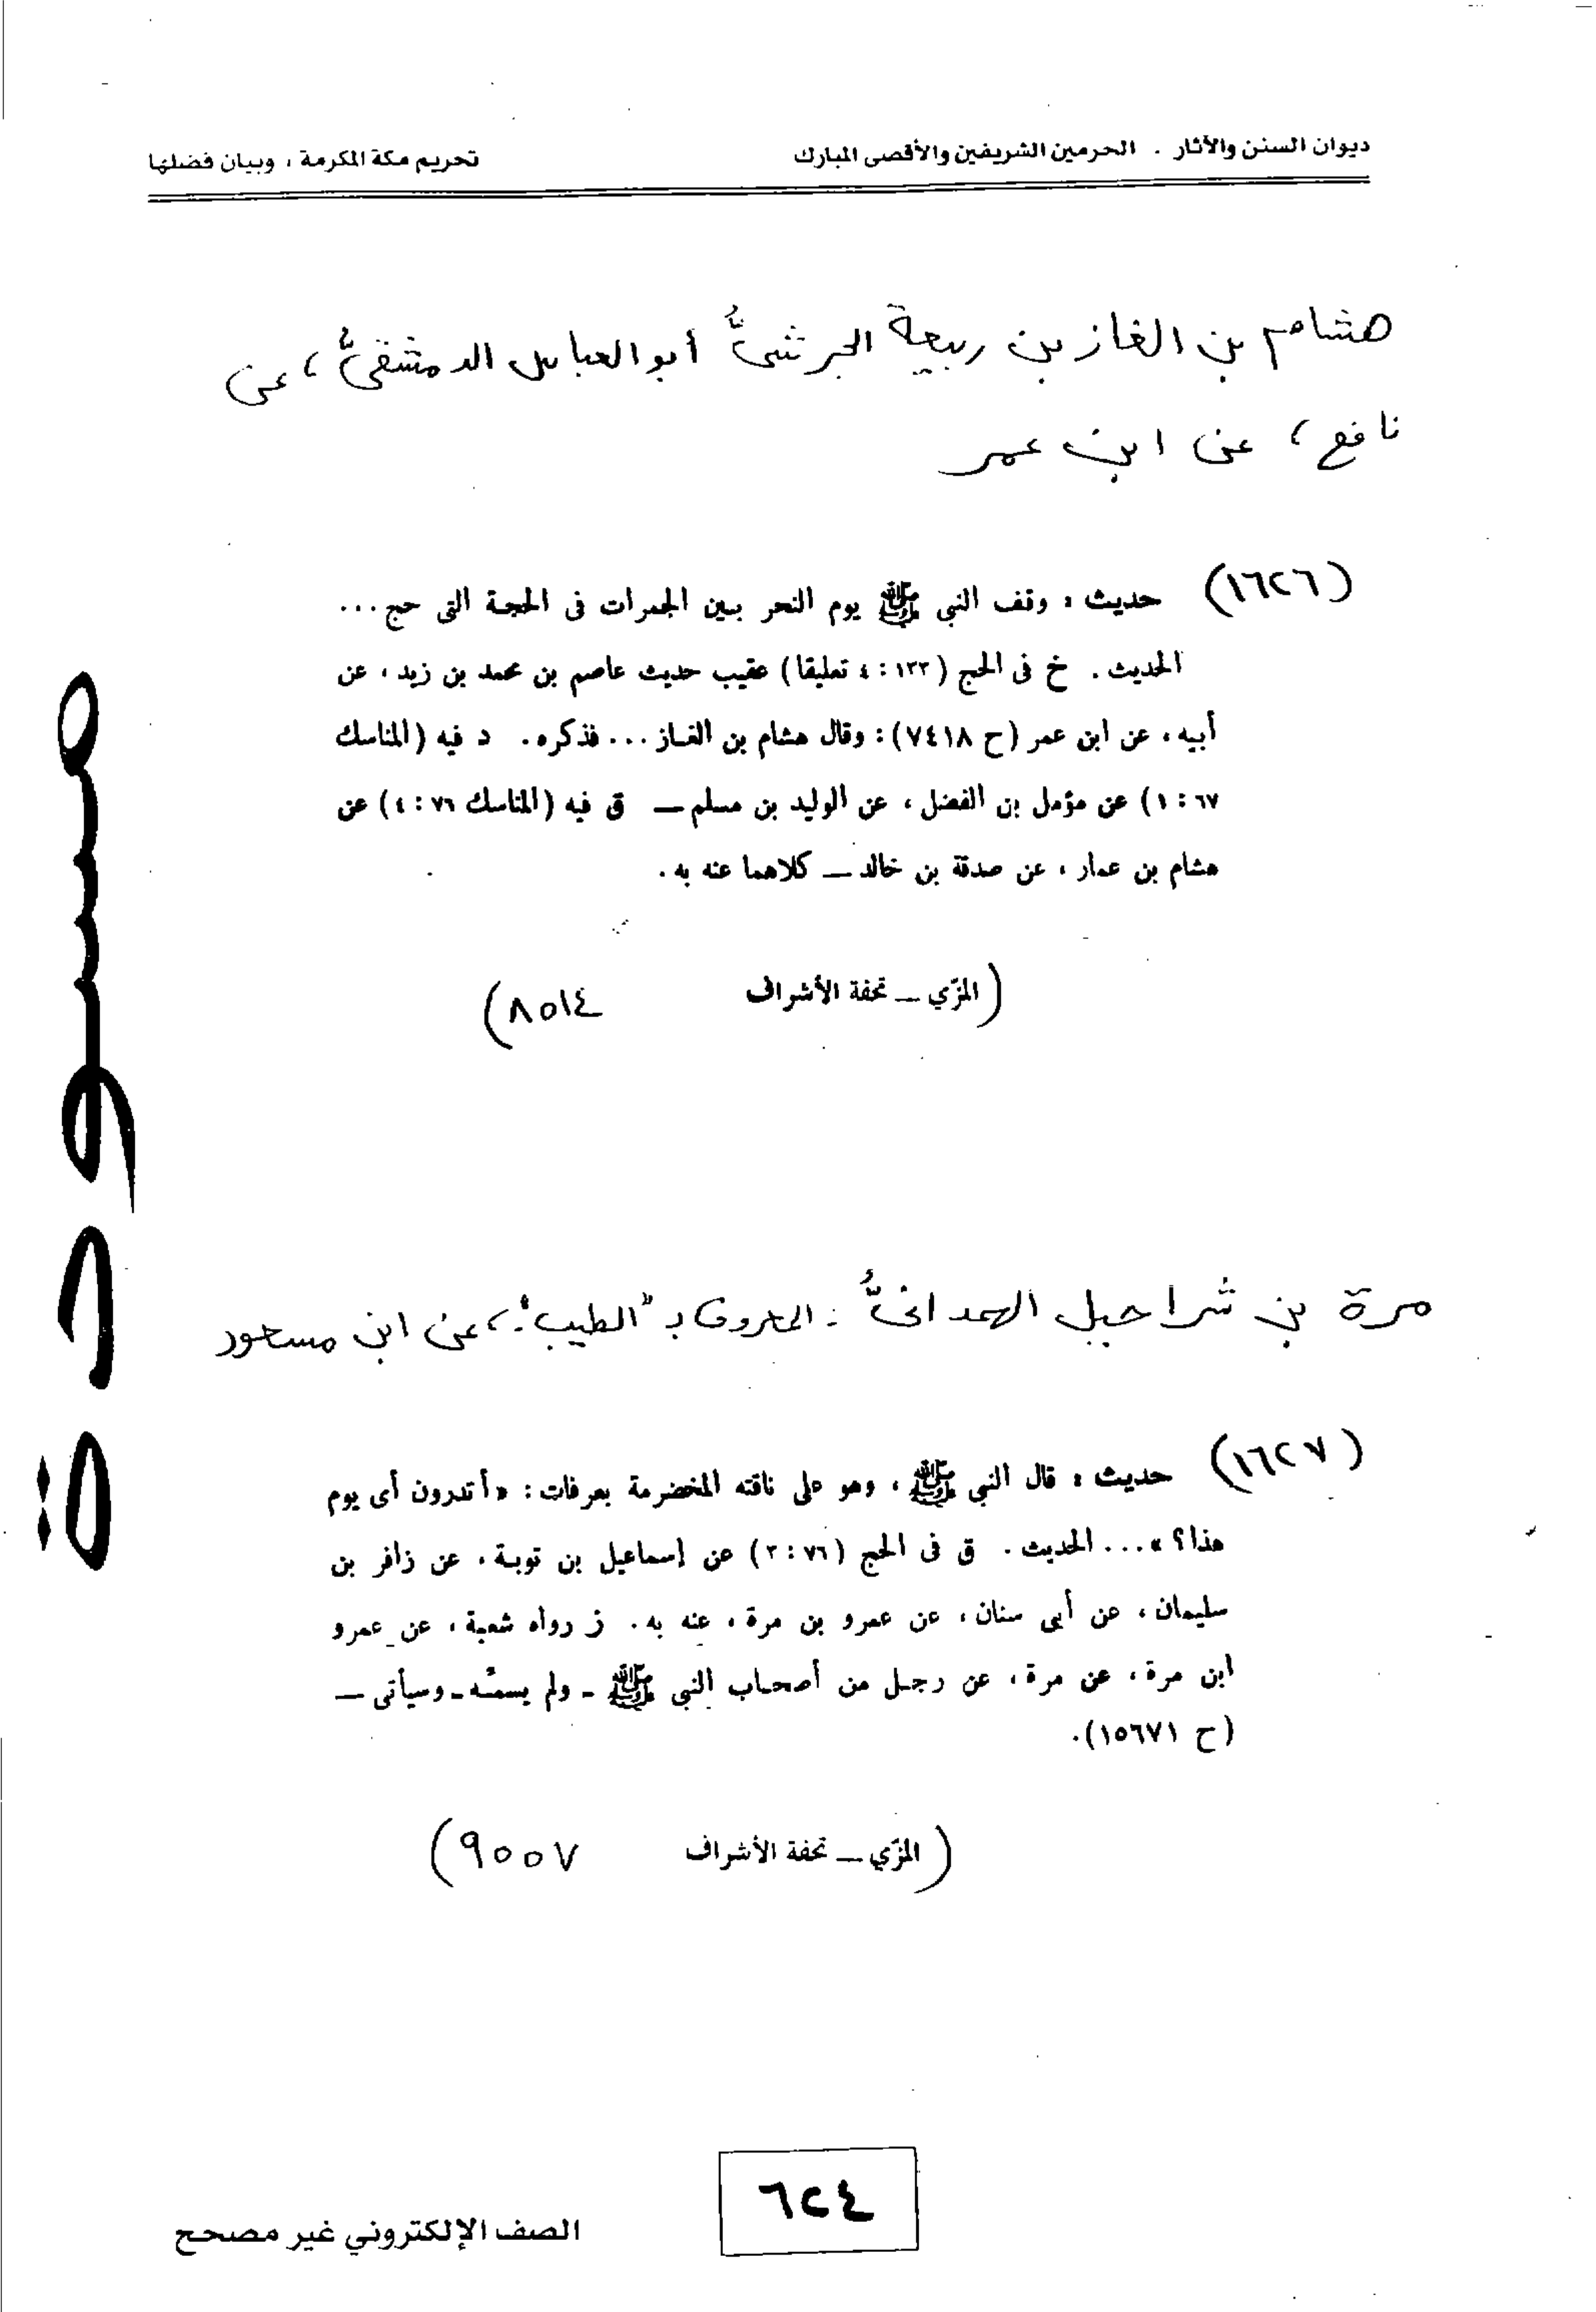 ديوان السنن والآثار . الحرمين الشريفين والأقصى المبارك
تحريم مكة المكرمة ، وبيان فضلها
هشام بن الغاز بن ربيعة الجرشيُّ أبو العباس الدمشقيُّ ، عن
نافع ، عن ابن عمر
(١٦٢٦) حديث : وقف النبي ﷺ يوم النحر بين الجمرات فى الحجة التى حج ...
الحديث . خ فى الحج (١٣٣ : ٤ تعليقا) عقيب حديث عاصم بن محمد بن زيد ، عن
أبيه ، عن ابن عمر (ح ٧٤١٨) : وقال هشام بن الغاز ... فذكره . د فيه (المناسك
٦٧ : ١) عن مؤمل بن الفضل ، عن الوليد بن مسلم — ق فيه (المناسك ٧٦ : ٤) عن
هشام بن عمار ، عن صدقة بن خالد — كلاهما عنه به .
(المزّي — تحفة الأشراف ٨٥١٤)
مرة بن شراحيل الهمدانيُّ : المعروف بـ "الطيب" ، عن ابن مسعود
(١٦٢٧) حديث : قال النبي ﷺ ، وهو على ناقته المخضرمة بعرفات : «أتدرون أى يوم
هذا؟ » ... الحديث . ق فى الحج (٧٦ : ٣) عن إسماعيل بن توبة ، عن زافر بن
سليمان ، عن أبى سنان ، عن عمرو بن مرة ، عنه به . ز رواه شعبة ، عن عمرو
ابن مرة ، عن مرة ، عن رجل من أصحاب النبي ﷺ - ولم يسمّه - وسيأتى —
(ح ١٥٦٧١) .
(المزّي — تحفة الأشراف ٩٠٠٧)
٦٢٤
الصف الإلكتروني غير مصحح
مسودة